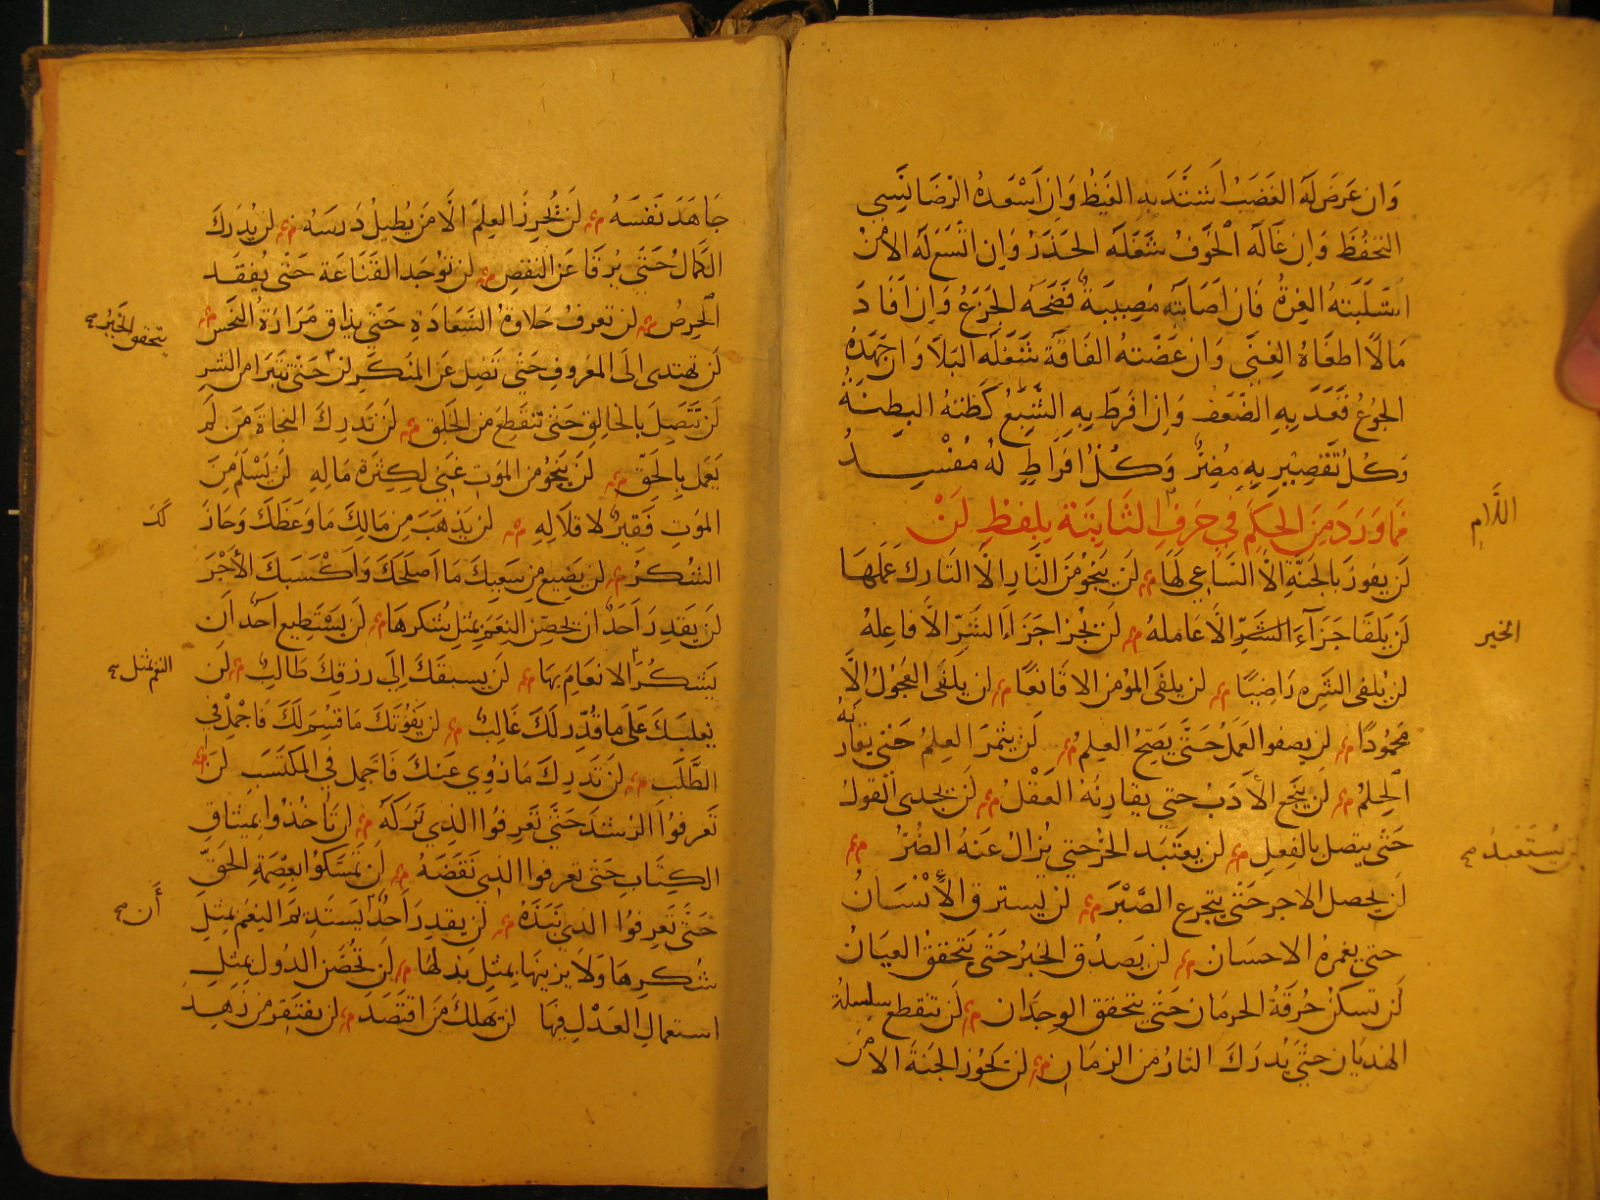 وَان عَرَضَ لَهُ الغَضَبُ اشتَدَّ بهِ الغَيظُ وَاِن اَسْعَدهُ الرْضَا نَسِي
التحَفُظَ وَاِن غَالَهُ الْخَوفُ شَغَلَهُ الحَذَرُ وَاِن اتْسَعَ لَهُ الاَمْنُ
استَلَبَتهُ العِزةُ فَان اَصَابَته مُصِيبَةٌ فَضَحَهُ الجَزَعُ وَاِن اَفَادَ
مَالًا اطغَاهُ الغِنَى وَان عَضَّتهُ الفَاقَة شَغَلَه البَلآ وَان جَهَدَهُ
الجُوعُ قَعَدَ بِهِ الضَعفُ وَاِن اَفرَط بِهِ الشّبَعُ كَظتهُ البطنَةُ
وَكُل تَقصِيْرٍ بِهِ مُضِرٌّ وَكُلُ اِفرَاطٍ لهُ مُفْسِدُ
فمَا وَرَدَ مِنَ الحِكَم في حَرفِ الثَابِتَة بِلَفظِ لَنْ
اللَّام
لَن يفوزَ بالجَنّةِ الّا السَّاعِي لَها لَن يَنجُو مِنَ النَّارِ الّا التَارك عَمَلَهَا
لَن يَلقَا جَزَآءَ الشَرِّ الاَّ عَامله لَن يُجْزا جَزَاءَ الشَرِّ الاَّ فَاعِلهُ
الخير
لن يُلفى الشَرِه رَاضِيًا لن يلفَى المؤمن الا قَانعًا لن يلفَى العَجُولُ الَّا
مَحمُودًا لن يصفوا العَمَلُ حَتَّى يَصِحُّ العِلمُ لَن يثمرَ العِلمُ حَتى يقَارنَهُ
الْحِلمُ لَن ينجع الاَدَبُ حتى يقارنَهُ العَقْلُ لَن يجدى القولُ
حَتى يتصل بالفِعلِ لن يعتَبَد الحرُّ حتي يُزالُ عَنهُ الضُرُّ
لن يُستَعبدُ صح
لَن يحصل الاجر حَتّى يتجرع الصَّبْرَ لن يسترق الاَنْسَانُ
حتى يغمرهُ الاحسَانُ لن يَصدُق الخبرُ حَتْى يَتَحَققَ العيَانُ
لَن تسكنْ حُرقَةُ الحرمَان حَتّى يتحَقق الوجدَان لَن تنقطع سلسلة
الهذيان حتَى يُدرَكَ الثارُ من الزمَان لن يَحُوزَ الجَنةَ الا من
جَاهَدَ نَفسَهُ لَن يُحرِزَ العِلمَ الَّا مَن يُطيلُ دَرسَهُ لن يُدرَكَ
الكَمالُ حَتّى يُرقَا عَن النقصِ لن تُوجَد القَنَاعَة حَتى يُفقَدَ
الْحِرصُ لن تعرفُ حَلاوَةُ السَّعَادَةِ حَتى يذاق مَرَارَةُ النَحس
يتحقق الخبرُ صح
لَن تهتدى الَى المَعرُوفِ حَتى تَضِل عَن المُنكَرِ لن حَتى تتبَرا من الشر
لَن تَتَّصِلَ بالخالِقِ حَتى تنقَطِعَ مِن الخَلقِ لَن تَدركَ النجاةَ مَن لَم
يَعمَل بِالحَقّ لَن يَنجُو من المَوتِ غَنِي لِكِثرَة مَالِهِ لَن يَسْلَمَ مِنَ
المَوتِ فَقِيرٌ لاقلالِهِ لَن يَذهَبَ مِن مَالِكَ مَا وَعَظَكَ وَحَازَ
لَكَ
الشكرُ لن يَضِيع من سَعيكَ مَا اَصلَحَكَ وَاَكسَبَكَ الاَجْرَ
لَن يَقدِرَ اَحَدٌ ان يحَصّن النِعَمَ بمثلِ شُكرهَا لَن يَسْتَطِيع اَحَدٌ اَن
يَشكُرَ الانعَامَ بِهَا لَن يَسبقَكَ اِلَى رزقِكَ طَالِبٌ لَن
النعم بمثل صح
يغلبَكَ عَلَى مَا قُدّر لَكَ غَالِبٌ لن يَفُوتَكَ مَا قُسِمَ لَكَ فَاجْمِلْ في
الطَّلَبِ لَن تَدرِكَ مَا زُوِي عَنكَ فَاَجمِل في المَكسَبِ لَن
تَعرفوُا الرُشدَ حَتَّى تَعرفوا الذِي تَرَكَهُ لن تَاخُذُوا بِميثَاقِ
الكِتَابِ حَتى تعرفوا الذي نَقَضَهُ لَن تَمسَّكوُا بِعِصمَةِ الحَقِّ
حَتَّى تَعرفوُا الذي نَبَذَهُ لَن يقدِرَ اَحَدٌ يَستَدِيمَ النِعَمَ بمثلِ
أَن صح
شُكرِهَا وَلا يزينهَا بِمِثلِ بذلهَا لَن تحُصَّنَ الدُول بمِثلِ
استعمالِ العَدْلِ فِيهَا لَن يَهلكَ مَن اقتَصَدَ لن يفتَقِر من زَهِدَ